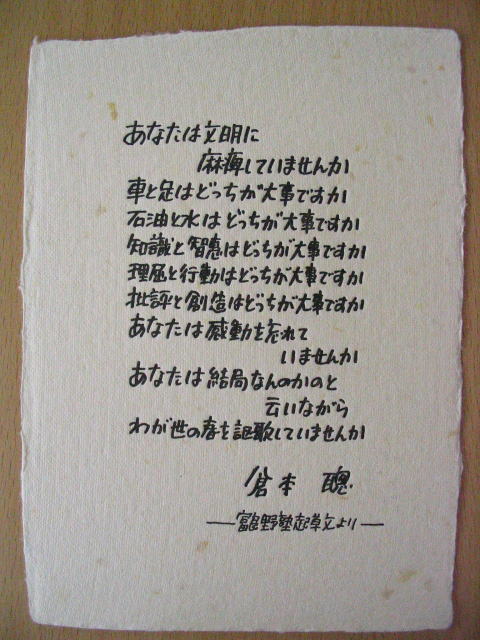 あなたは文明に
麻痺していませんか
車と足はどっちが大事ですか
石油と水はどっちが大事ですか
知識と智恵はどっちが大事ですか
理屈と行動はどっちが大事ですか
批評と創造はどっちが大事ですか
あなたは感動を忘れて
いませんか
あなたは結局なんのかのと
云いながら
わが世の春を謳歌していませんか
倉本 聰
―富良野塾起草文より―